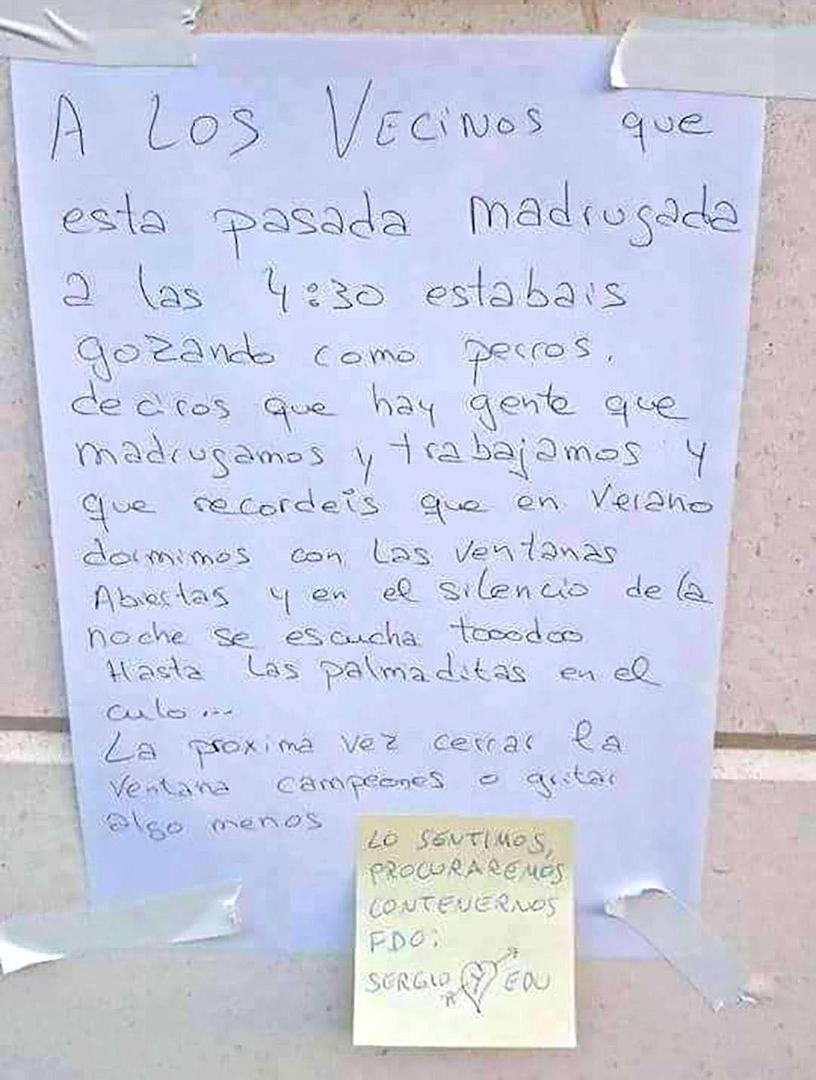 A LOS VECINOS que
esta pasada madrugada
a las 4:30 estabais
gozando como perros.
deciros que hay gente que
madrugamos y trabajamos y
que recordeis que en verano
dormimos con las ventanas
Abiertas y en el silencio de la
noche se escucha tooodoo
Hasta las palmaditas en el
culo...
La proxima vez cerrar la
ventana campeones o gritar
algo menos
LO SENTIMOS,
PROCURAREMOS
CONTENERNOS
FDO:
SERGIO Y EDU